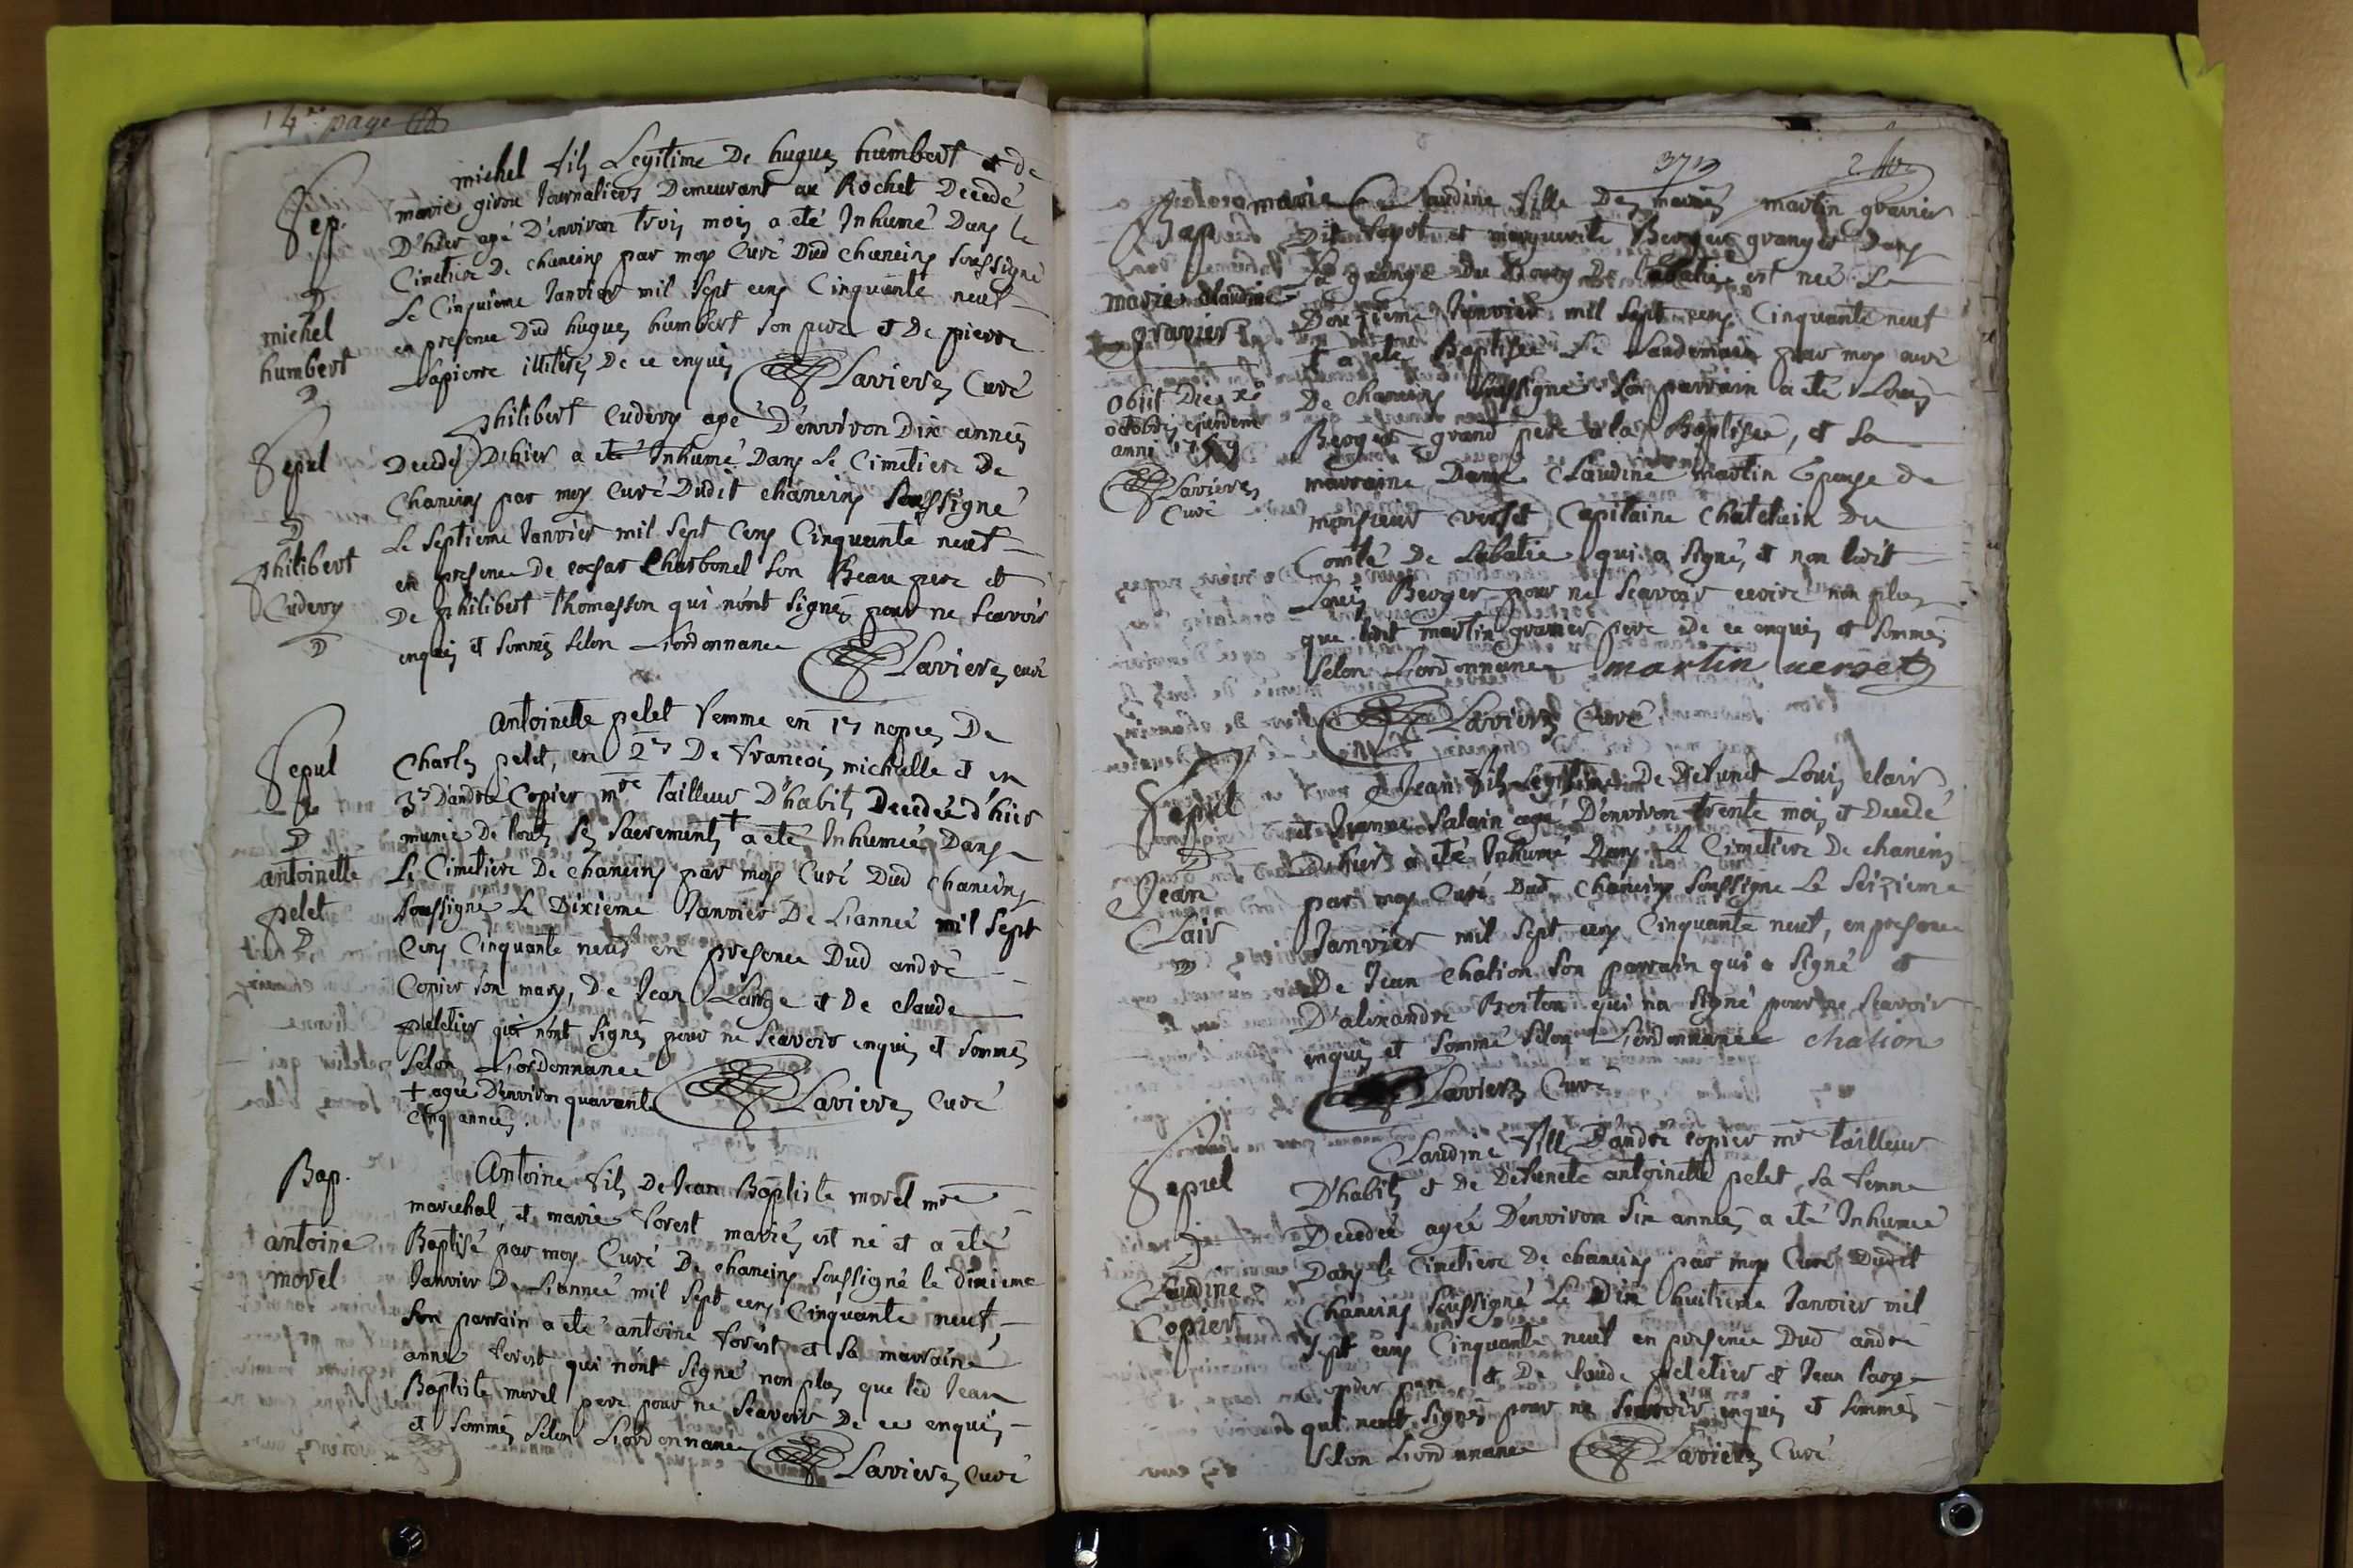 14e page
Sep.
D
michel
humbert
D
michel fils Legitime De hugues humbert et de
marie girou Journaliers Demeurant au Rochet Decedé
D'hier agé D'environ trois mois a eté Inhumé Dans le
Cimetiere De chaneins par moy Curé Dud chaneins soussigné
Le Cinquieme Janvier mil sept cens Cinquante neuf
en presence Dud hugues humbert son pere et De pierre
Lapierre illiterés De ce enquis
Lavieres Curé
Sepul
D
philibert
Cudery
D
philibert Cudery agé D'environ Dix années
Decedé D'hier a eté Inhumé Dans Le Cimetiere De
Chaneins par moy Curé Dudit chaneins soussigné
Le septieme Janvier mil sept Cens Cinquante neuf
en presence De cesar Charbonel son Beau pere et
De philibert thomasson qui n'ont signés pour ne scavoir
enquis et sommés selon L'ordonnance
Lavieres curé
Sepul
D
antoinette
pelet
D
Antoinette pelet femme en 1res nopces De
Charles pelet, en 2es De francois michelle et en
3es D'andré Copier mtre tailleur D'habits Decedée d'hier
munie De touts ses sacrements † a eté Inhumée Dans
Le Cimetiere De chaneins par moy Curé Dud chaneins
soussigné Le Dixieme Janvier De L'année mil sept
Cens Cinquante neuf en presence Dud andré
Copier son mary, De Jean Large et De claude
peletier qui n'ont signés pour ne scavoir enquis et sommés
selon L'ordonnance
† agée D'environ quarante
cinq années.
Lavieres Curé
Bap.
antoine
morel
Antoine fils De Jean Baptiste morel mtre
marechal et marie forest mariés est né et a eté
Baptisé par moy Curé De chaneins soussigné le dixieme
Janvier De L'année mil sept cens Cinquante neuf,
son parrain a eté antoine forest et sa marraine
anne forest qui n'ont signé non plus que led Jean
Baptiste morel pere pour ne scavoir De ce enquis
et sommés selon L'ordonnance
Lavieres Curé
Bap
marie claudine
gravier
obiit Die
octobris ejusdem
anni 1759
Lavieres
Curé
marie Claudine fille Des mariés martin gravier
Dit et marguerite Berger grangers Dans
La grange Du Bourg De Labatie est née Le
Douzieme Janvier mil sept cens Cinquante neuf
et a eté Baptisée Le Landemain par moy curé
De chaneins soussigné son parrain a eté Louis
Berger grand pere a la Baptisée, et sa
marraine Dame Claudine martin Epouse de
monsieur verset Capitaine chatelain Du
Comté De Labatie qui a signé, et non ledit
Louis Berger pour ne scavoir ecrire non plus
que ledit martin gravier pere De ce enquis et sommés
selon L'ordonnance martin verset
Lavieres Curé
Sepul
D
Jean
Clair
Jean fils Legitime De Defunct Louis clair
et Jeanne agé D'environ trente mois et Decedé
D'hier a eté Inhumé Dans Le Cimetiere De chaneins
par moy Curé Dud chaneins soussigné Le seizieme
Janvier mil sept cens Cinquante neuf, en presence
De Jean chalion son parrain qui a signé et
D'alexandre Berton qui n'a signé pour ne scavoir
enquis et sommé selon L'ordonnance chalion
Lavieres Curé
Sepul
D
Claudine
Copier
Claudine fille D'andré copier mtre tailleur
D'habits et De Defuncte antoinette pelet sa femme
Decedée agée D'environ six années a eté Inhumée
Dans le Cimetiere De chaneins par moy Curé Dudit
Chaneins soussigné Le Dix huitieme Janvier mil
sept cens Cinquante neuf en presence Dud andré
Copier pere et De claude peletier et Jean Large
qui n'ont signés pour ne scavoir enquis et sommés
selon L'ordonnance
Lavieres Curé